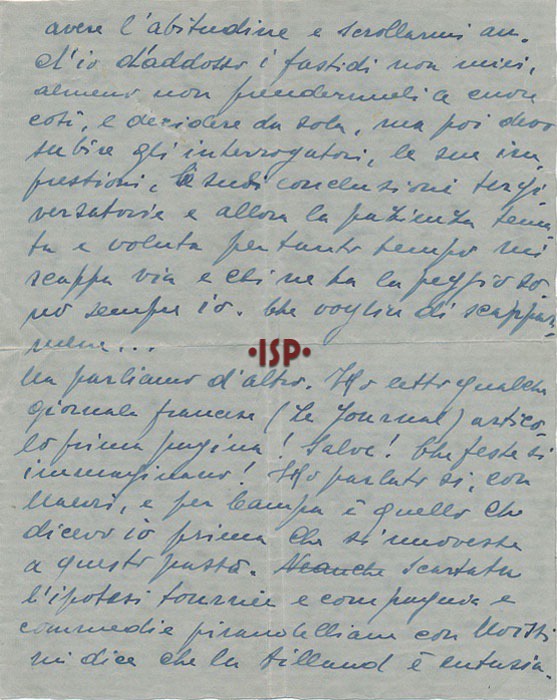 avere l'abitudine e scrollarmi an-
ch'io d'addosso i fastidi non miei,
almeno non prendermeli a cuore
così, e decidere da sola, ma poi devo
subire gli interrogatori, le sue im
pressioni, le sue conclusioni tergi
versatorie e allora la pazienza tenu
ta e voluta per tanto tempo mi
scappa via e chi ne ha la peggio so
no sempre io. Che voglia di scappar-
mene...
•ISP•
Ma parliamo d'altro. Ho letto qualche
giornale francese (Le Journal) artico
lo prima pagina! Salve! Che feste si
immaginano! Ho parlato si, con
e per è quello che
dicevo io prima che si movesse
a questo passo. Neanche Scartata
l'ipotesi tournée e compagnia e
commedie pirandelliane con
mi dice che la è entusia-